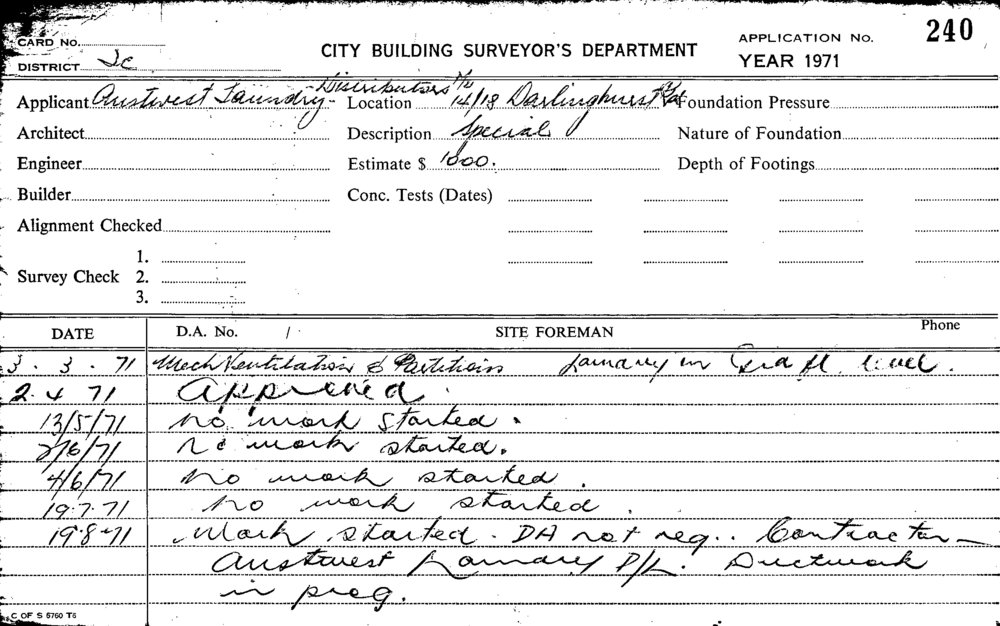 CARD No.
CITY BUILDING SURVEYOR'S DEPARTMENT
APPLICATION No. 240
DISTRICT Jc
YEAR 1971
Applicant Austwest Laundry Distributors P/L Location 14/18 Darlinghurst Rd Foundation Pressure
Architect Description Special Nature of Foundation
Engineer Estimate $ 1000. Depth of Footings
Builder Conc. Tests (Dates)
Alignment Checked
1.
Survey Check 2.
3.
DATE D.A. No. / SITE FOREMAN Phone
3. 3. 71 Mech Ventilation & Partitions Laundry in Grd fl. level.
2. 4 71 Approved
13/5/71 No work started.
2/6/71 No work started.
4/6/71 No work started.
19.7.71 No work started.
19.8.71 Work started. DA not req.. Contractor -
Austwest Laundry P/L. Ductwork
in prog.
C OF S 5760 T6